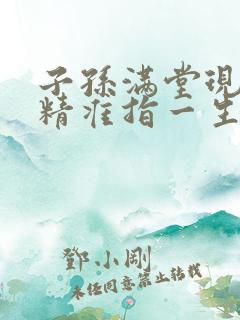 子孫满堂現
精准指一生
鄧小剛
未经同意禁止转载